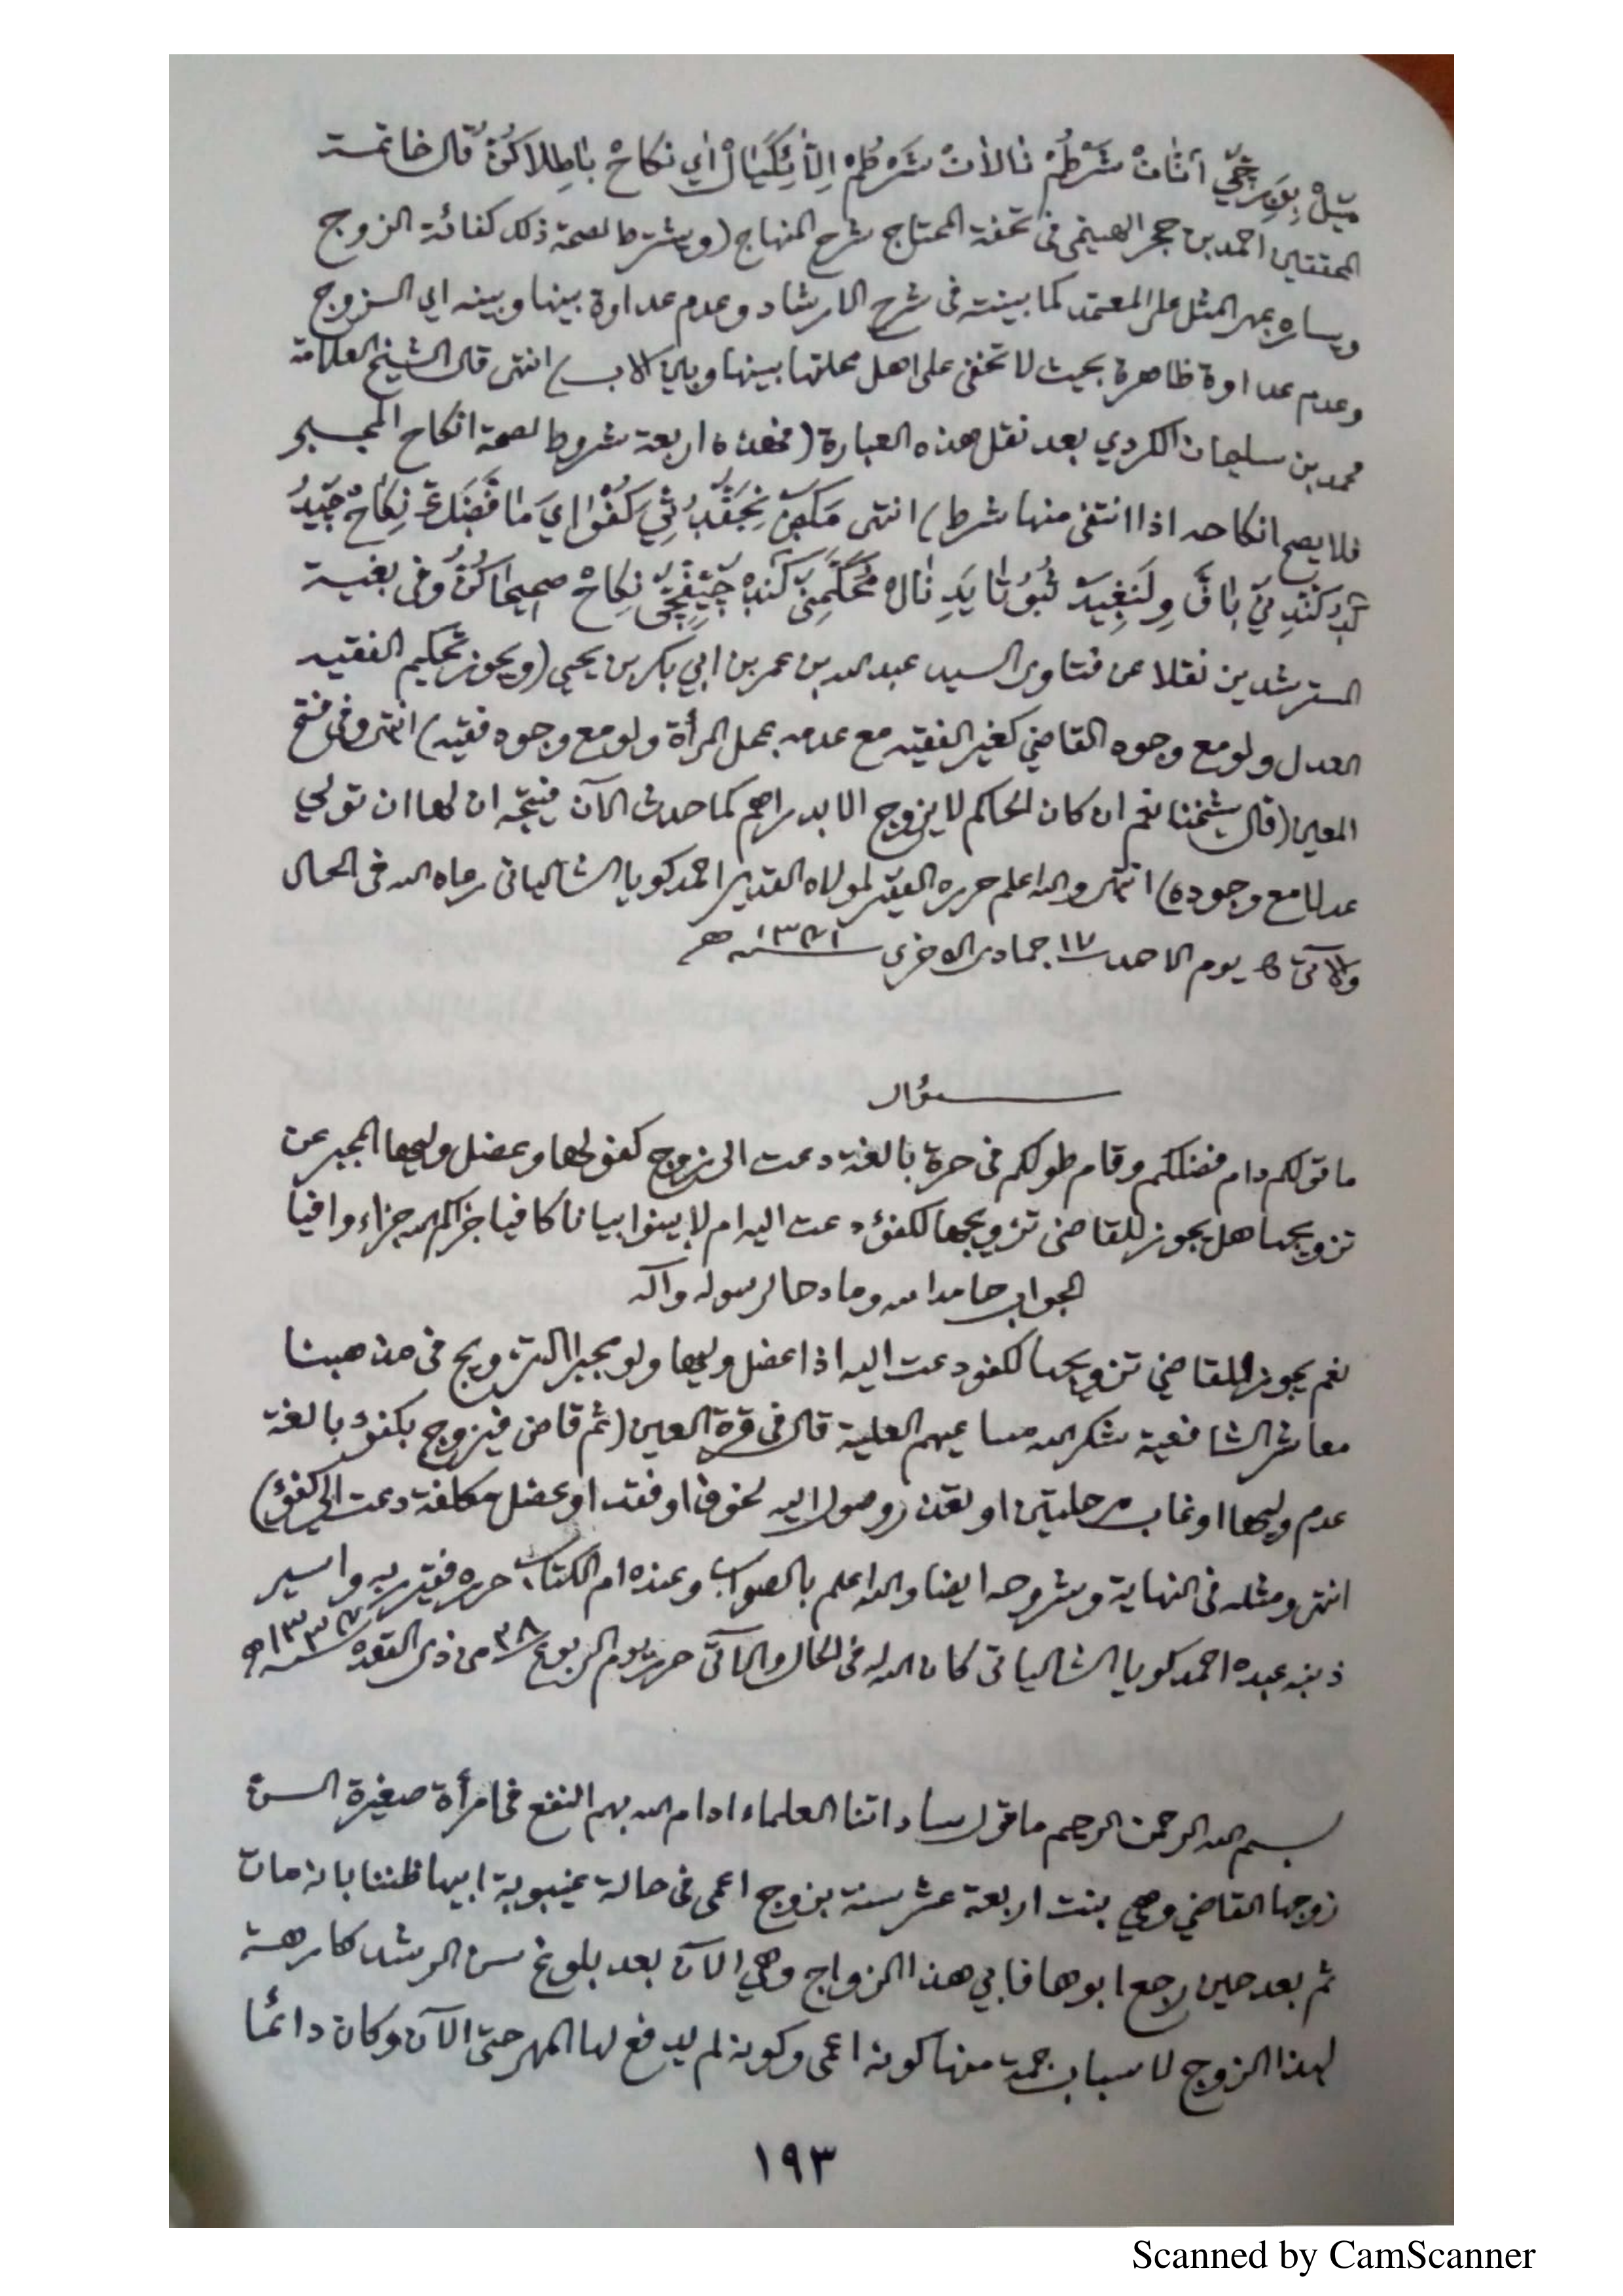 ميل أنان شرطم نالان شرطم اي نكاح باطلاكن قال خاتمة
المحققين احمد بن حجر الهيتمي في تحفة المحتاج شرح المنهاج (ويشترط لصحة ذلك كفائة الزوج
ويساره بمهر المثل على المعتمد كما بينته في شرح الارشاد وعدم عداوة بينها وبينه اي الزوج
وعدم عداوة ظاهرة بحيث لا تخفى على اهل محلتها بينها وبين الاب) انتهى قال الشيخ العلامة
محمد بن سليمان الكردي بعد نقل هذه العبارة (فهذه اربعة شروط لصحة انكاح المجبر
فلا يصح انكاحه اذا انتفى منها شرط) انتهى
نكاح صحيحاكن وفى بغية
المسترشدين نقلا عن فتاوى السيد عبد الله بن عمر بن ابي بكر بن يحيى (ويجوز تحكيم الفقيه
العدل ولو مع وجود القاضي كغير الفقيه مع عدمه بمحل المرأة ولو مع وجود فقيه) انتهى وفى فتح
المعين (قال شيخنا نعم ان كان الحاكم لا يزوج الا بدراهم كما حدث الآن فيتجه ان لها ان تولي
عدلا مع وجوده) انتهى والله اعلم حرره الفقير لمولاه القدير احمد كويا الشالياتى رعاه الله فى الحال
والآتى يوم الاحد ١٧ جمادى الاخرى هـ
سؤال
ما قولكم دام فضلكم وقام طولكم فى حرة بالغة دعت الى زوج كفؤ لها وعضل وليها المجبر عن
تزويجها هل يجوز للقاضى تزويجها لكفؤ دعت اليه ام لا بينوا بيانا كافيا جزاكم الله جزاء وافيا
الجواب حامدا لله ومادحا لرسوله وآله
نعم يجوز للقاضي تزويجها لكفو دعت اليه اذا عضل وليها ولو مجبرا التزويج فى مذهبنا
معاشر الشافعية شكر الله مساعيهم العلية قال فى قرة العين (ثم قاض فيزوج بكفؤ بالغة
عدم وليها او غاب مرحلتين او تعذر وصول اليه لخوف او فقد او عضل مكلفة دعت الى كفؤ)
انتهى ومثله فى النهاية وشروحه ايضا والله اعلم بالصواب وعنده ام الكتاب حرره فقير ربه واسير
ذنبه عبده احمد كويا الشالياتى كان الله له فى الحال والآتى حرر يوم الربوع من ذى القعدة هـ
بسم الله الرحمن الرحيم ما قول ساداتنا العلماء ادام الله بهم النفع فى امرأة صغيرة السن
زوجها القاضي وهي بنت اربعة عشر سنة بزوج اعمى فى حالة غيبوبة ابيها ظننا بانه مات
ثم بعد حين رجع ابوها فابي هذا الزواج وهي الآن بعد بلوغ سن الرشد كارهة
لهذا الزوج لاسباب جمة منها كونه اعمى وكونه لم يدفع لها المهر حتى الآن وكان دائما
١٩٣
Scanned by CamScanner